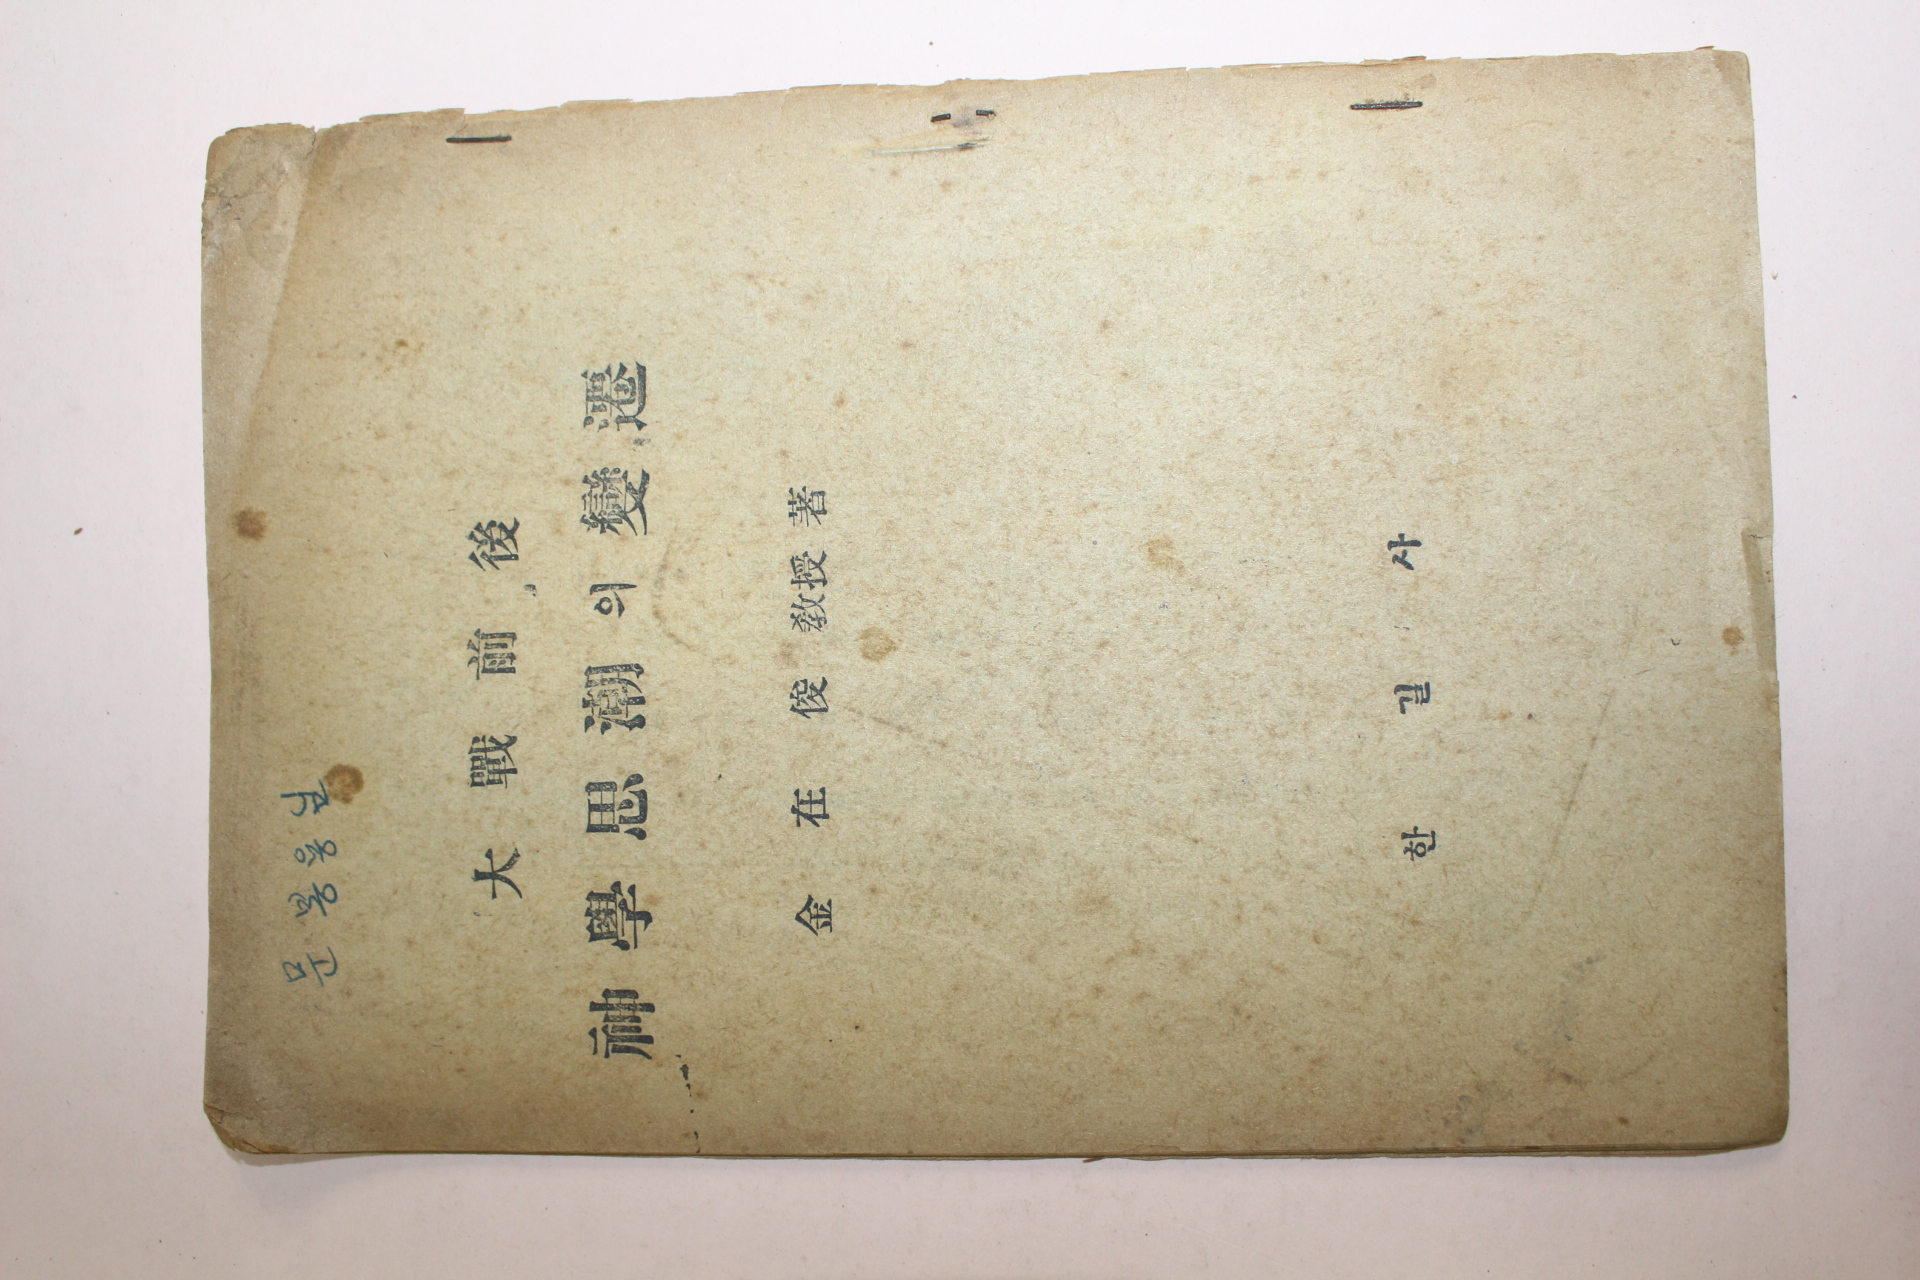 문 봉용님
大戰前後
神學思潮의變遷
金在俊 敎授 著
한길사